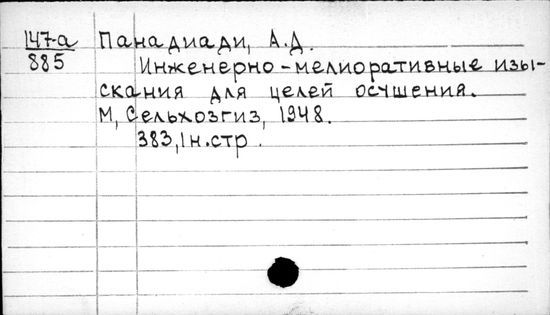 147-а Панадиади, А.Д.
885 Инженерно-мелиоративные изы-
скания для целей осушения.
М, Сельхозгиз, 1948.
383, 1н.стр.